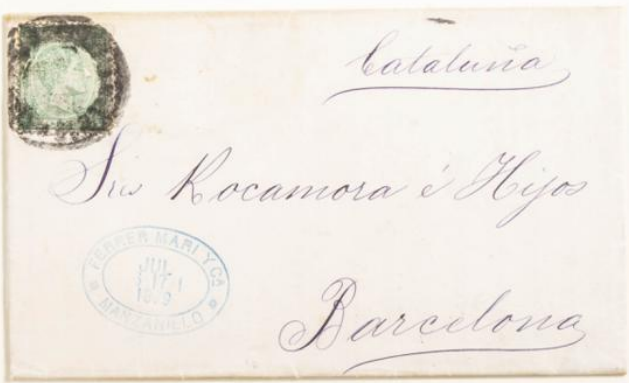 Cataluña
Sres Rocamora é Hijos
FERRER MARI Y CA
JUL
MANZANILLO
Barcelona